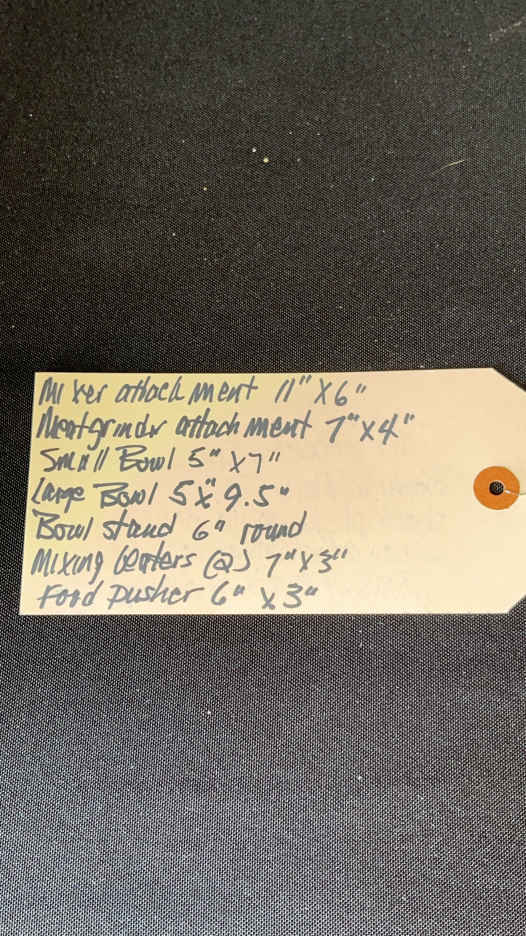 Mixer attachment 11" X 6"
Meatgrindr attachment 7" X 4"
Small Bowl 5" X 7"
Large Bowl 5" X 9.5"
Bowl stand 6" round
Mixing beaters (2) 7" X 3"
Food pusher 6" X 3"